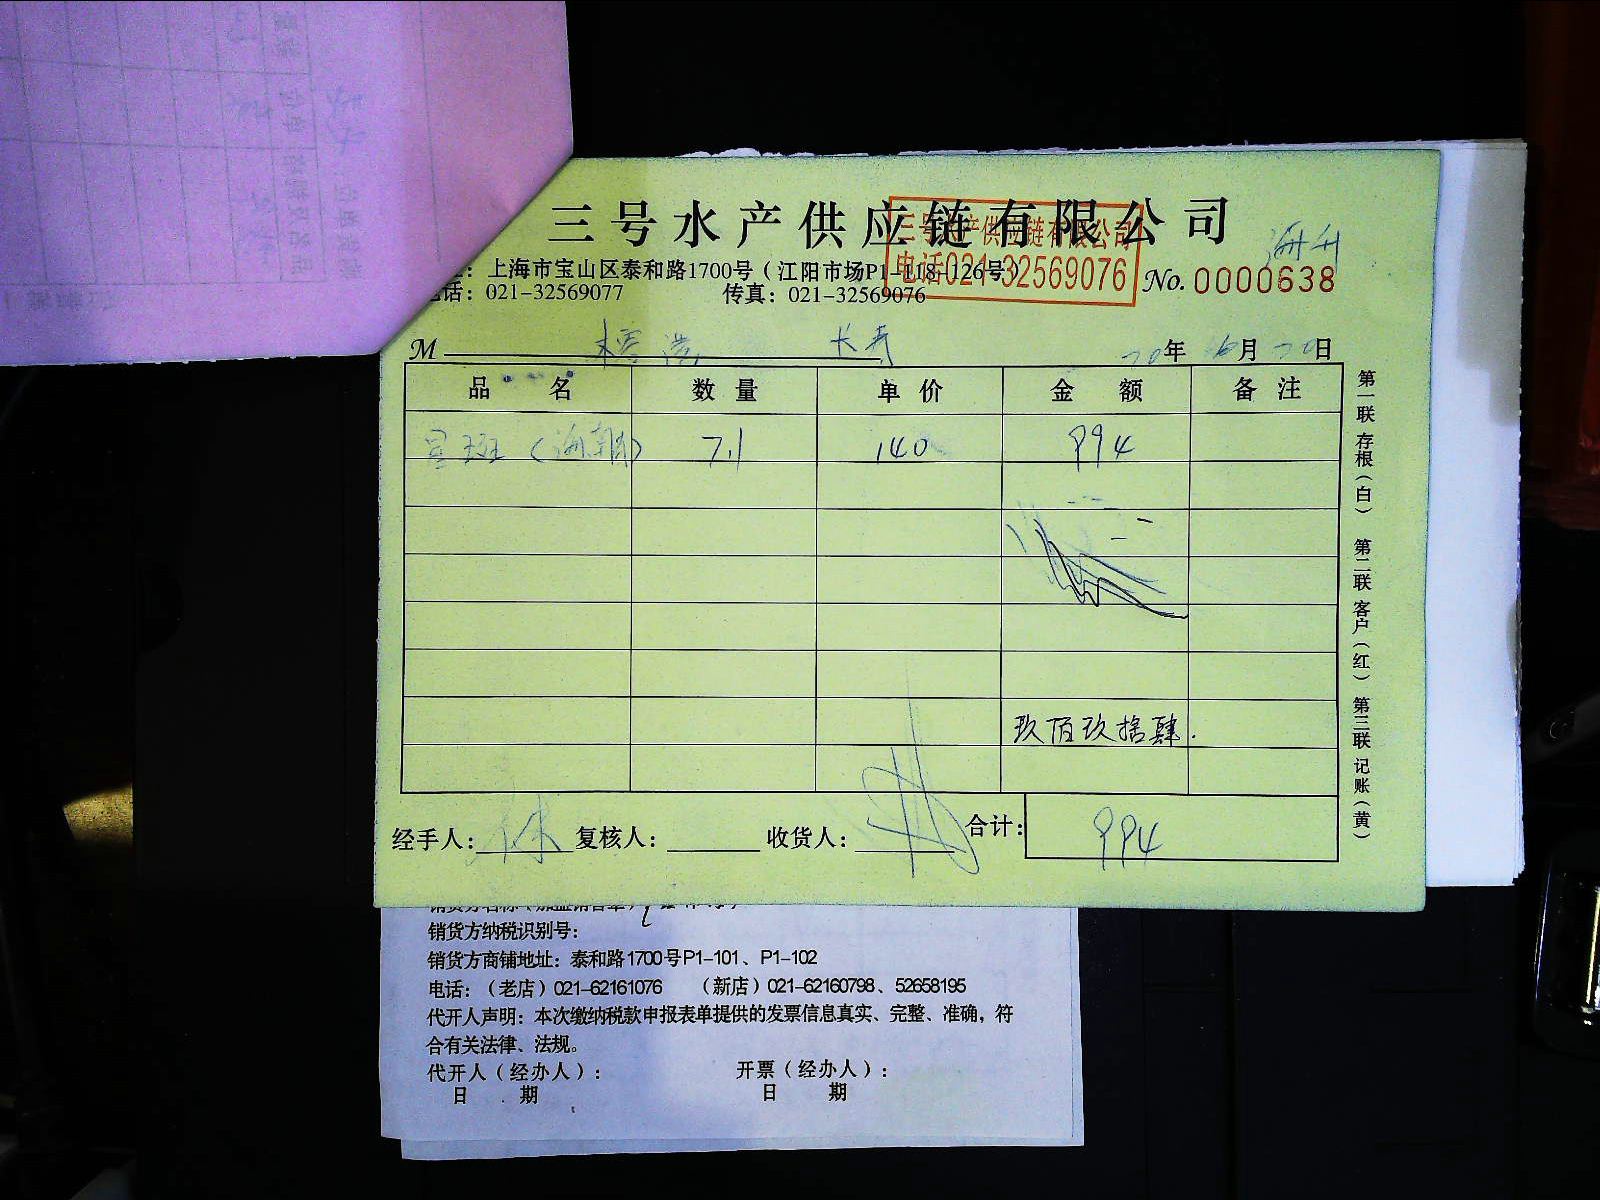 三号水产供应链有限公司
三号水产供应链有限公司
电话021-32569076
上海市宝山区泰和路1700号（江阳市场P1-118-126号）
话：021-32569077 传真：021-32569076
No. 0000638
M 长寿 20年 月 20日
品 名 数量 单价 金 额 备注
7.1 140 994
玖佰玖拾肆.
经手人： 复核人： 收货人： 合计： 994
第一联 存根（白） 第二联 客户（红） 第三联 记账（黄）
销货方纳税识别号：
销货方商铺地址：泰和路1700号P1-101、P1-102
电话：（老店）021-62161076 （新店）021-62160798、52658195
代开人声明：本次缴纳税款申报表单提供的发票信息真实、完整、准确，符
合有关法律、法规。
代开人（经办人）： 开票（经办人）：
日 期 日 期